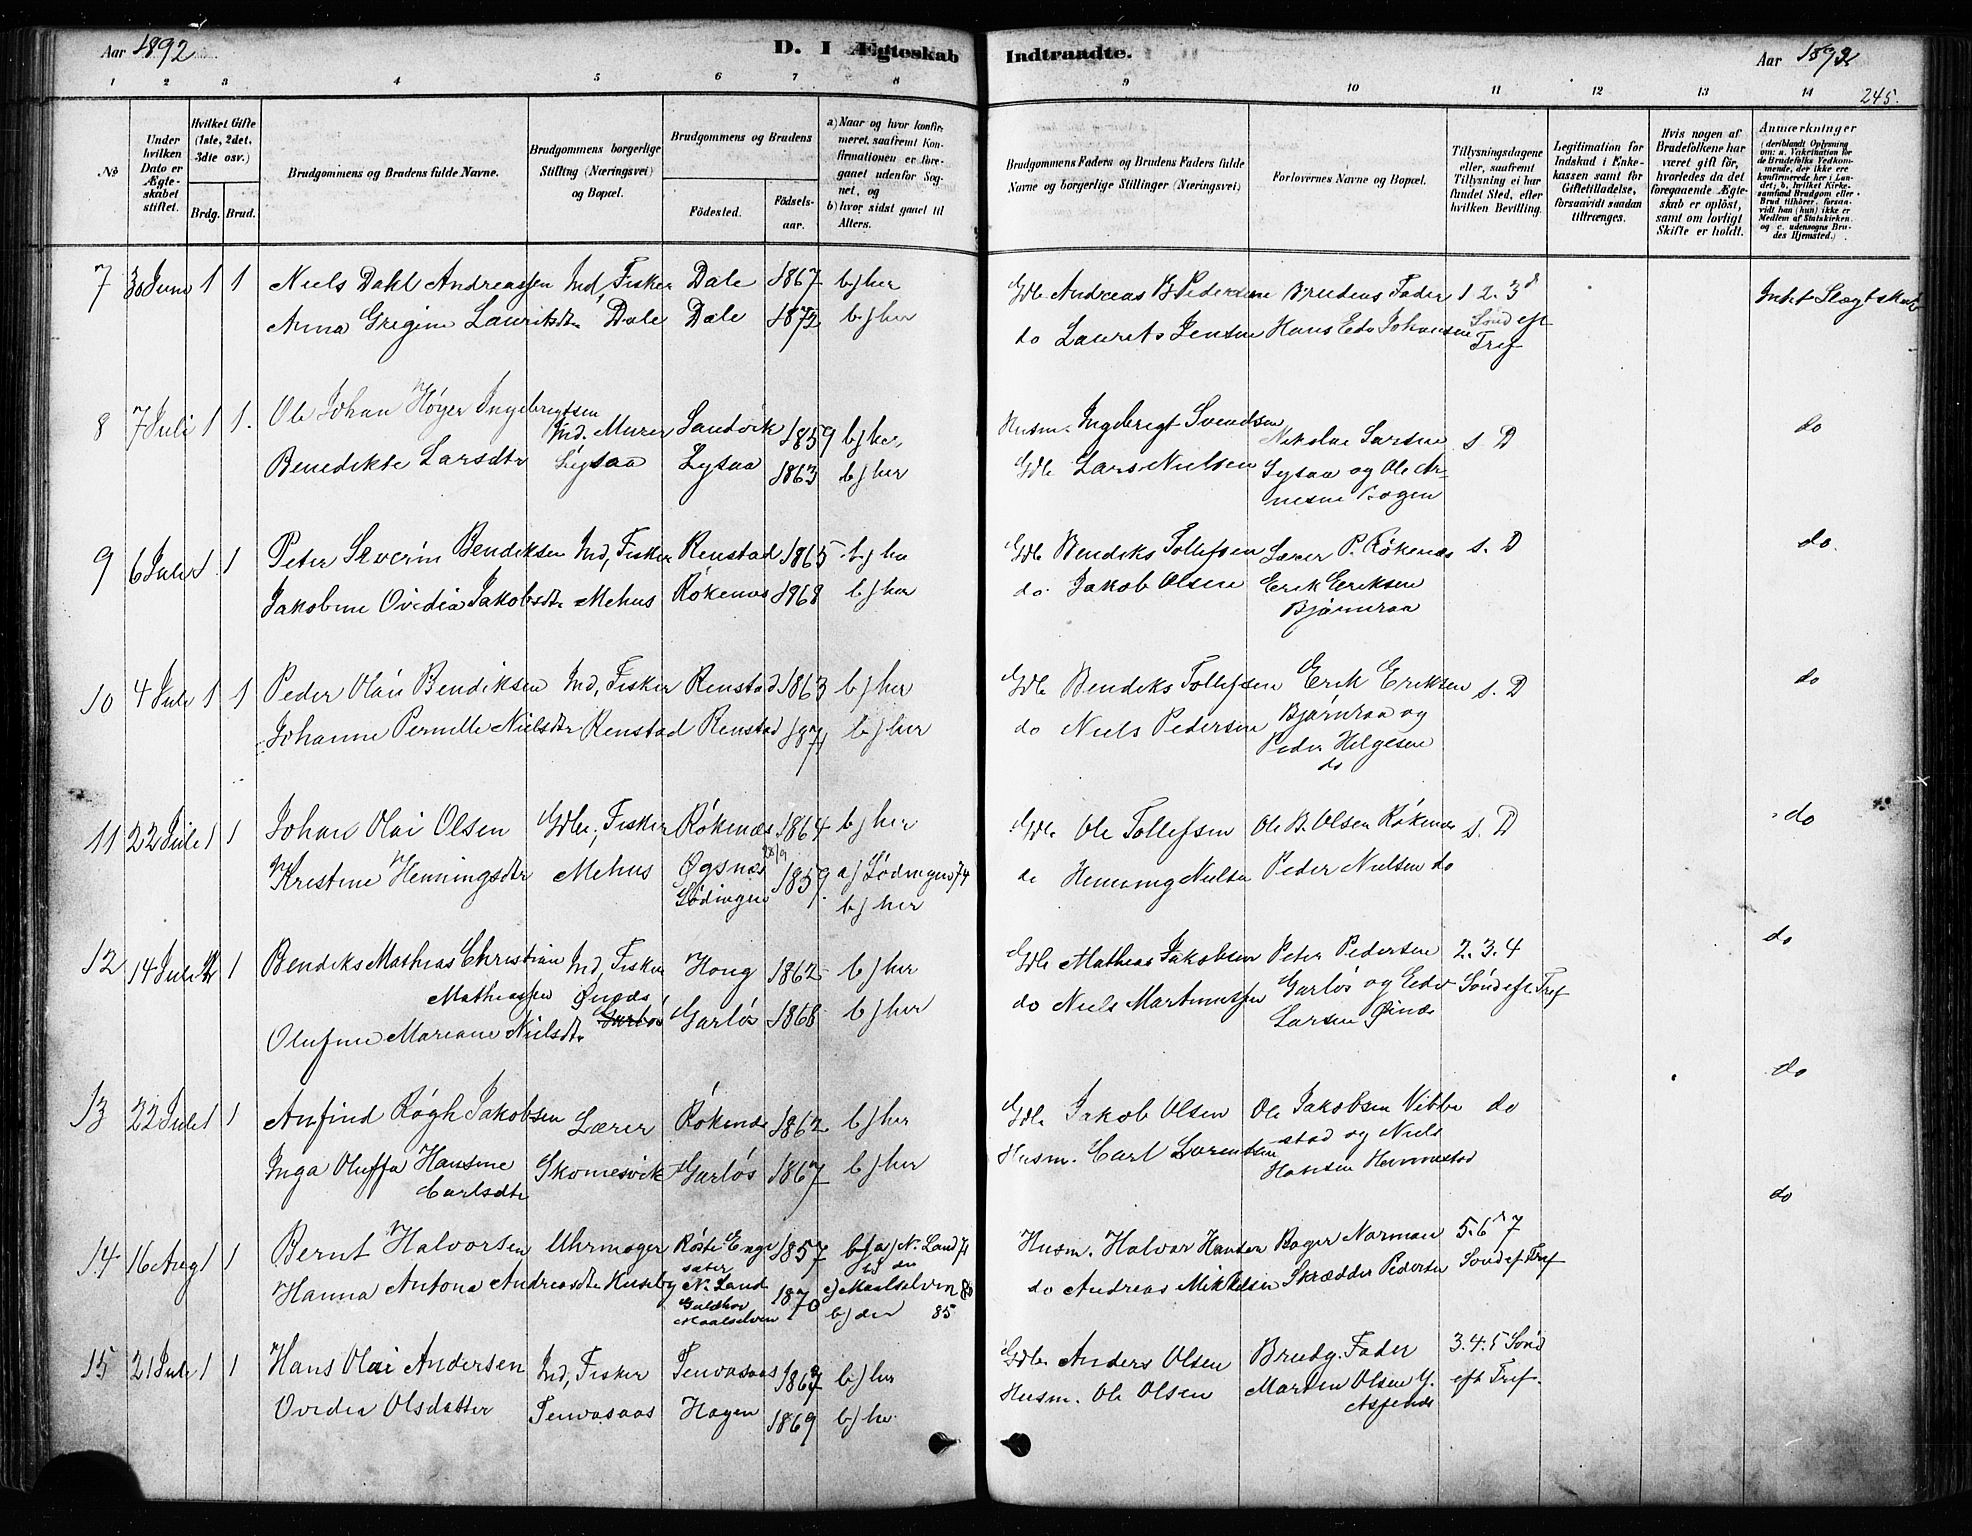 Aar 1892
D. I Ægteskab
Indtraadte.
Aar 1892
245.
1 2 3 4 5 6 7 8
9 10 11 12 13 14
No
Under hvilken Dato er Ægteskabet stiftet.
Hvilket Gifte (1ste, 2det, 3dte osv.)
Brdg. Brud.
Brudgommens og Brudens fulde Navne.
Brudgommens borgerlige Stilling (Næringsvei) og Bopæl.
Brudgommens og Brudens
Födested. Födselsaar.
a) Naar og hvor konfirmeret, saafremt Konfirmationen er foregaaet udenfor Sognet, og
b) hvor sidst gaaet til Alters.
Brudgommens Faders og Brudens Faders fulde Navne og borgerlige Stillinger (Næringsvei)
Forlovernes Navne og Bopæl.
Tillysningsdagene eller, saafremt Tillysning ei har fundet Sted, efter hvilken Bevilling.
Legitimation for Indskud i Enkekassen samt for Giftetilladelse, forsaavidt saadan tiltrænges.
Hvis nogen af Brudefolkene har været gift för, hvorledes da det foregaaende Ægteskab er oplöst, samt om lovligt Skifte er holdt.
Anmærkninger
(deriblandt Oplysning om: a. Vakcination for de Brudefolks Vedkommende, der ikke ere konfirmerede her i Landet; b. hvilket Kirkesamfund Brudgom eller Brud tilhörer, forsaavidt han (hun) ikke er Medlem af Statskirken, og c. udensogns Brudes Hjemsted.)
7 30 Juni 1 1 Niels Dahl Andreassen Ind, Fisker Dale 1867 b) her
Anna Gregine Lauritsdtr Dale Dale 1872 b) her
Gdb. Andreas B Pedersen Brudens Fader 1 2. 3d
do Laurets Jensen Hans Edv Johansen Sönd eft Tref
Intet Slægtskab
8 7 Juli 1 1. Ole Johan Höyer Ingebrigtsen Ind. Murer Sandvik 1859 b) her
Benedikte Larsdtr Lysaa Lysaa 1863 b) her
Husm. Ingebrigt Svendsen Nikolai Larsen s. D
Gdb Lars Nielsen Lysaa og Ole Arnesen Bogen
do
9 6 Juli 1 1 Peter Severin Bendiksen Ind, Fisker Renstad 1865 b) her
Jakobine Ovidia Jakobsdtr Mehus Rökenæs 1868 b) her
Gdb Bendiks Tollefsen Lærer P. Rökenæs s. D
do. Jakob Olsen Erik Eriksen
Bjørnraa
do.
10 4 Juli 1 1 Peder Olai Bendiksen Ind, Fisker Renstad 1863 b) her
Johanne Pernille Nielsdtr Renstad Renstad 1871 b) her
Gdb Bendiks Tollefsen Erik Eriksen s. D
do Niels Pedersen Bjørnraa og
Peder Helgesen
do
do
11 22 Juli 1 1 Johan Olai Olsen Gdbr, Fisker Rökenæs 1864 b) her
Kristine Henningsdtr Mehus Øgsnæs Lödingen 1859 a) Lödingen 74
b) her
Gdb Ole Tollefsen Ole B. Olsen Rökenæs s. D
do Henning Nielsen Peder Nielsen do
do
12 14 Juli 1 Bendiks Mathias Christian Ind, Fisker Houg 1862 b) her
Mathiassen Øinæs
Olufine Mariane Nielsdtr Garlös 1868 b) her
Gdb Mathias Jakobsen Peter Pedersen 2. 3. 4
do Niels Martinussen Garlös og Edv Sönd eft Tref
Larsen Øinæs
do
13 22 Juli 1 1 Anfind Rögh Jakobsen Lærer Rökenæs 1862 b) her
Inga Oluffa Hansine Skomesvik Garlös 1867 b) her
Carlsdtr
Gdb. Jakob Olsen Ole Jakobsen Vebbe do
Husm. Carl Lorentsen stad og Niels
Hansen Hemmestad
do
14 16 Aug 1 1 Bernt Halvorsen Uhrmager 1857 a) N. Land 71
Hanna Antona Andreasdtr Huseby 1870 Maalselven
Maalselven b) her 85
Husm. Halvor Hansen Bager Norman 5. 6 7
do Andreas Mikkelsen Skrædder Pedersen Sönd eft Tref
do
15 21 Juli 1 1 Hans Olai Andersen Ind, Fisker Tenvasaas 1867 b) her
Ovidia Olsdatter Tenvasaas Hagen 1869 b) her
Gdb. Anders Olsen Brudg. Fader 3. 4. 5 Sönd
Husm. Ole Olsen Marten Olsen Y. eft Tref.
Aspenæs